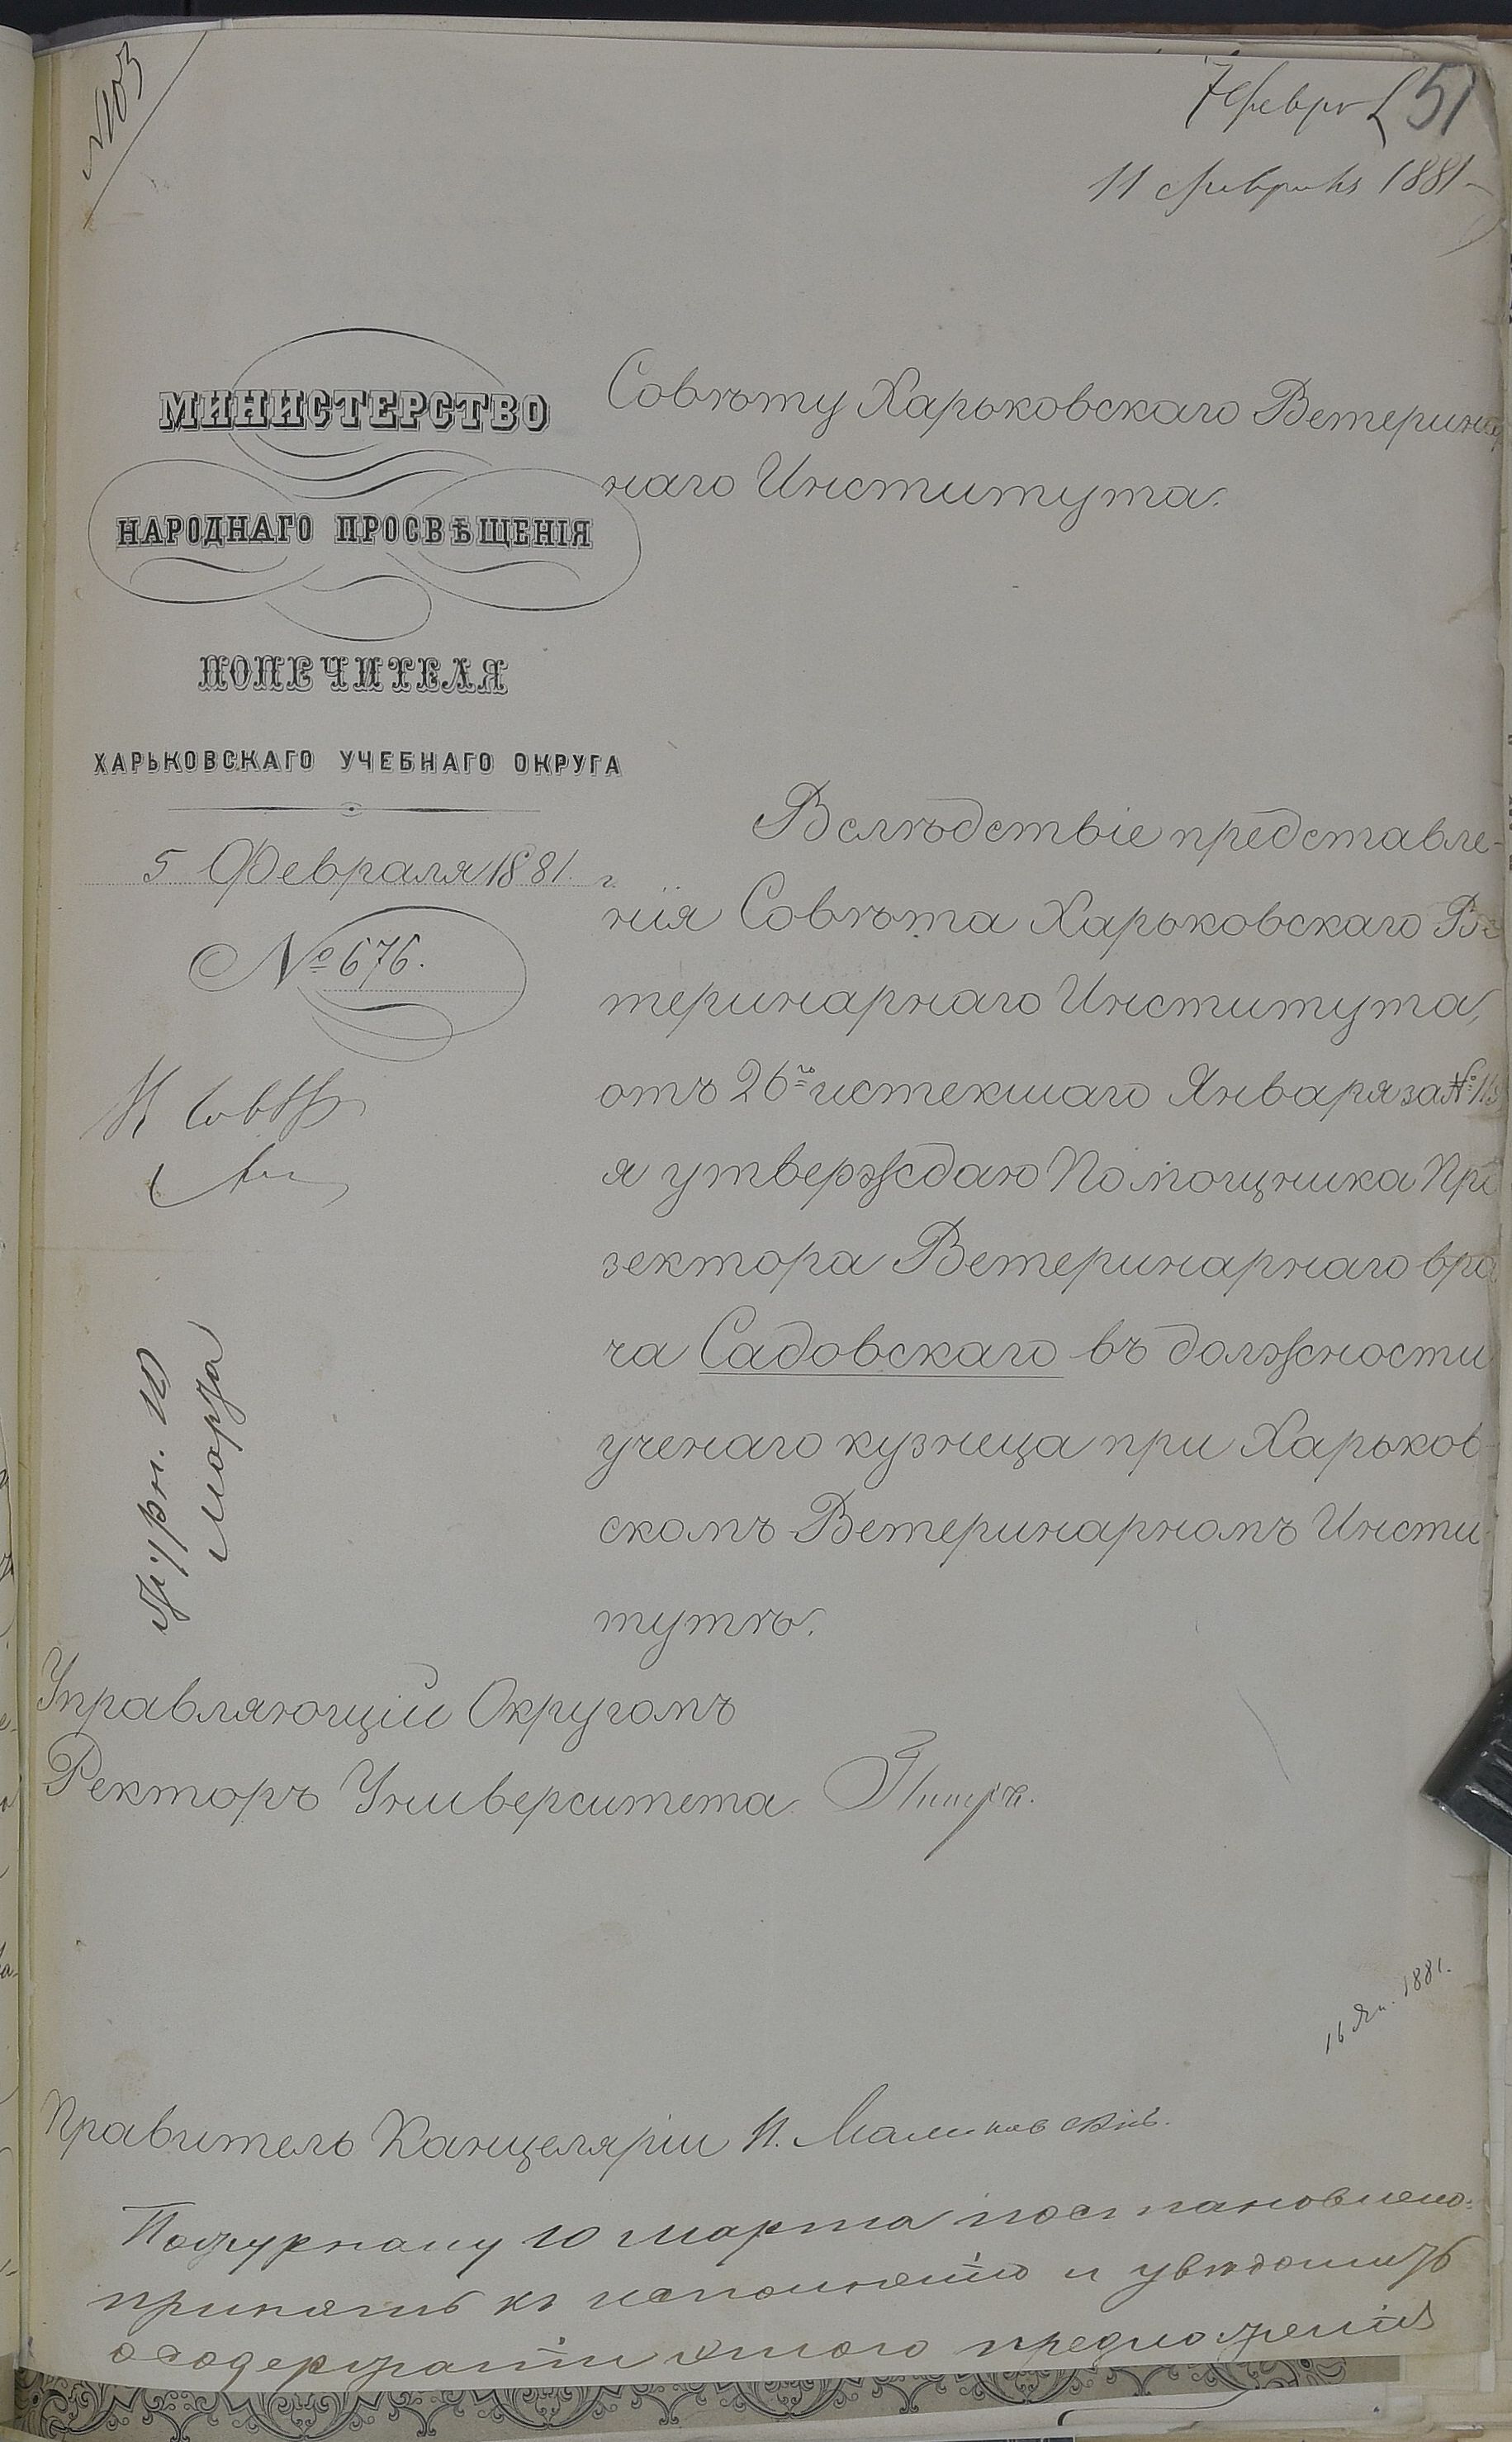 №103
7 Февр 51
11 февраля 1881
МИНИСТЕРСТВО
НАРОДНАГО ПРОСВѢЩЕНІЯ
ПОПЕЧИТЕЛЯ
ХАРЬКОВСКАГО УЧЕБНАГО ОКРУГА
5 Февраля 1881 г.
№ 676.
Журн. 10
марта
Совѣту Харьковскаго Ветеринар
наго Института.
Вслѣдствіе представле-
нія Совѣта Харьковскаго Ве
теринарнаго Института,
отъ 26го истекшаго Января за №
я утверждаю Помощника Про
зектора Ветеринарнаго вра
ча Садовскаго въ должности
ученаго кузнеца при Харьков-
скомъ Ветеринарномъ Инсти
тутѣ.
Управляющій Округомъ
Ректоръ Университета
16 Ян. 1881.
Правитель Канцеляріи
По журналу 10 марта постановлено:
принять къ исполненію и увѣдомить
о содержаніи этого предложенія